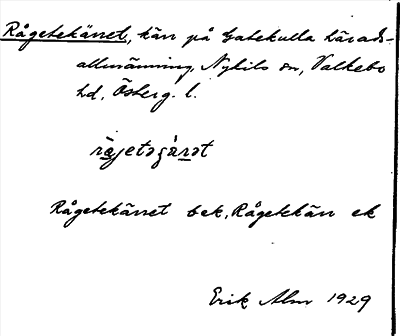 Rågetekänet, kän på Gatekulla härads-
allmänning, Nykils sn, Valkebo
hd, Österg. l.
Rågetekänet bek., Rågetekän ek
Erik Alm 1929